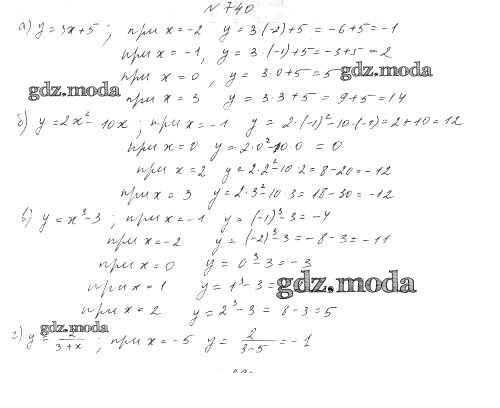 № 740
а) y = 3x+5 ; при x = -2 y = 3(-2)+5 = -6+5 = -1
при x = -1, y = 3·(-1)+5 = -3+5 = 2
при x = 0 , y = 3·0+5 = 5
gdz.moda
gdz.moda
при x = 3 y = 3·3+5 = 9+5 = 14
б) y = 2x² - 10x ; при x = -1 y = 2·(-1)² - 10·(-1) = 2+10 = 12
при x = 0 y = 2·0² - 10·0 = 0
при x = 2 y = 2·2² - 10·2 = 8-20 = -12
при x = 3 y = 2·3² - 10·3 = 18-30 = -12
в) y = x³ - 3 ; при x = -1 y = (-1)³ - 3 = -4
при x = -2 y = (-2)³ - 3 = -8-3 = -11
при x = 0 y = 0³ - 3 = -3
при x = 1 y = 1³ - 3 =
gdz.moda
при x = 2 y = 2³ - 3 = 8-3 = 5
gdz.moda
г) y = 2/(3+x) ; при x = -5 y = 2/(3-5) = -1